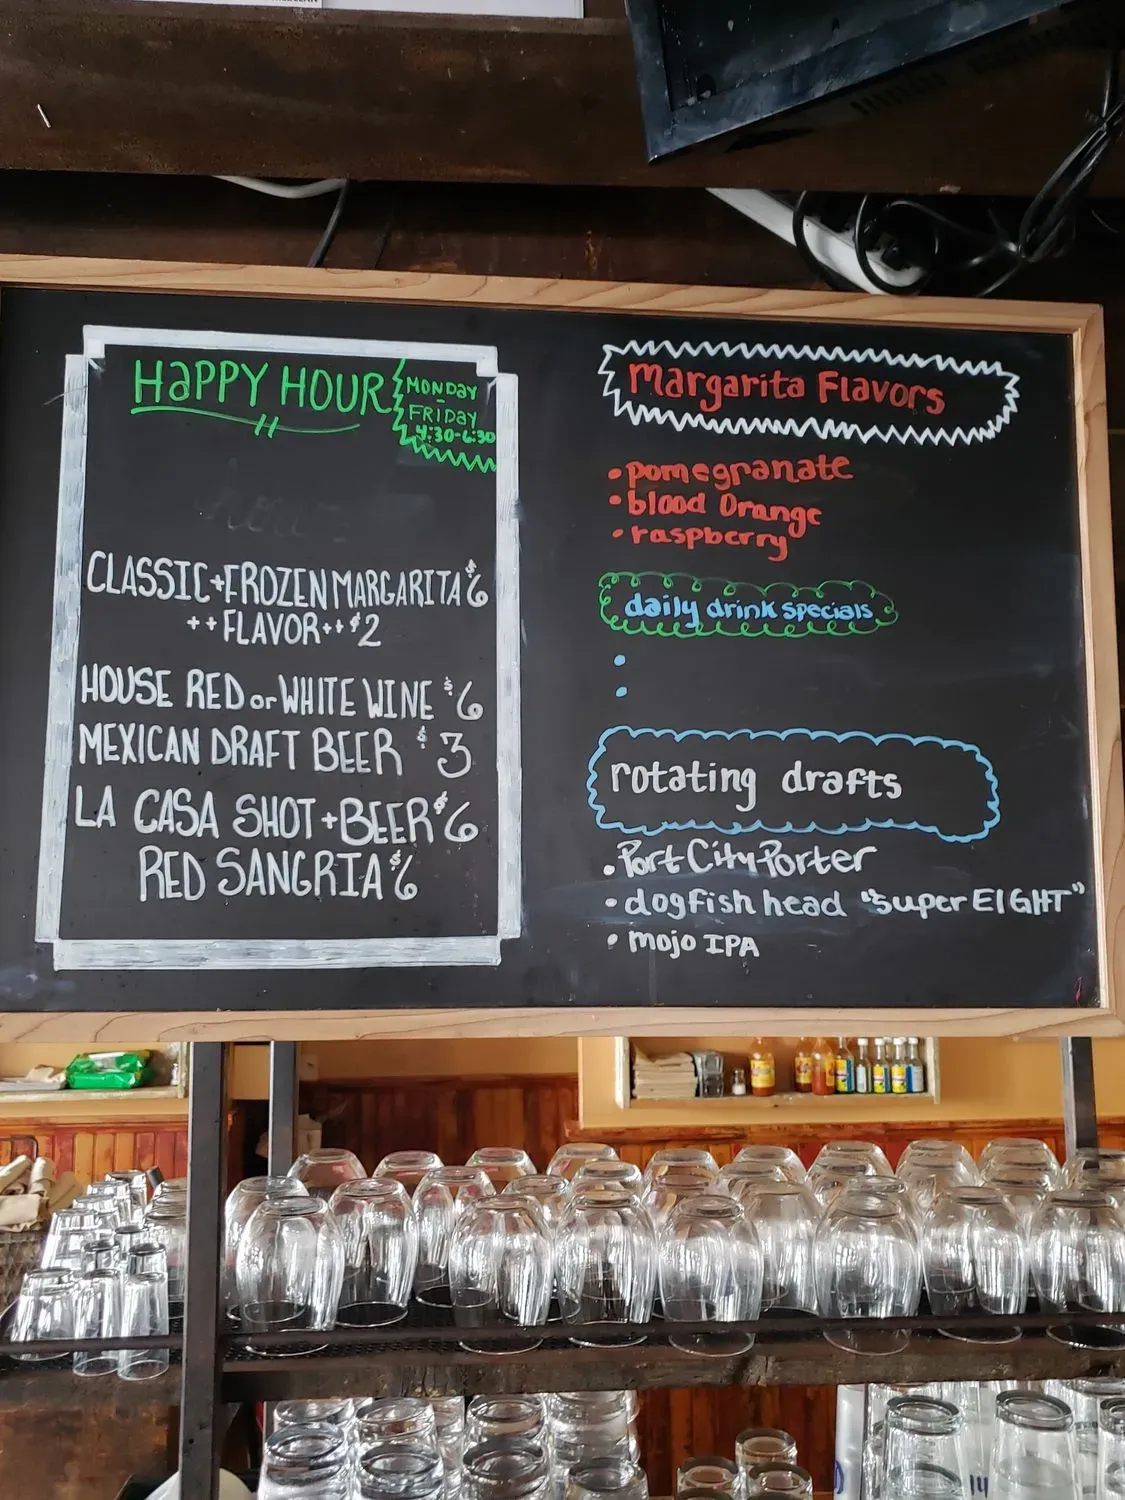 HAPPY HOUR
MONDAY
-
FRIDAY
4:30-6:30
CLASSIC+FROZEN MARGARITA $6
++FLAVOR++ $2
HOUSE RED or WHITE WINE $6
MEXICAN DRAFT BEER $3
LA CASA SHOT+BEER $6
RED SANGRIA $6
Margarita Flavors
• pomegranate
• blood Orange
• raspberry
daily drink specials
•
•
rotating drafts
• Port City Porter
• dogfish head "Super EIGHT"
• mojo IPA